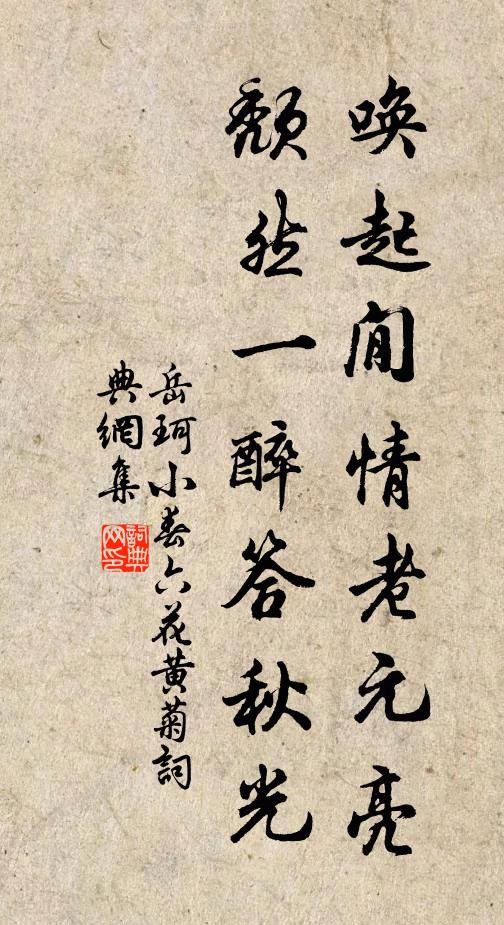 唤起闲情老元亮
颓然一醉答秋光
岳珂小春六花黄菊詞
典網集
詞典網印